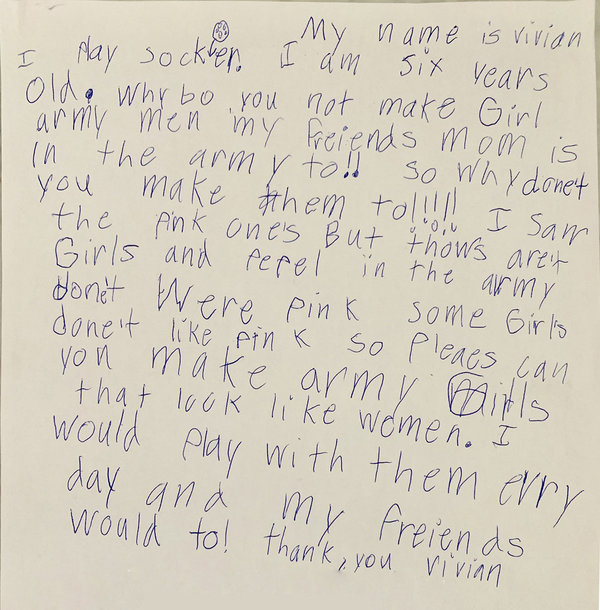 My name is vivian
I play socker. I am six years
Old. Why bo you not make Girl
army men my freiends mom is
in the army to!! so why done't
you make them to!!!!! I saw
the pink one's But thows are't
Girls and pepel in the army
done't were pink some Girls
done't like pink so pleaes can
you make army Girls
that look like women. I
would play with them evry
day and my freiends
would to! thank, you vivian